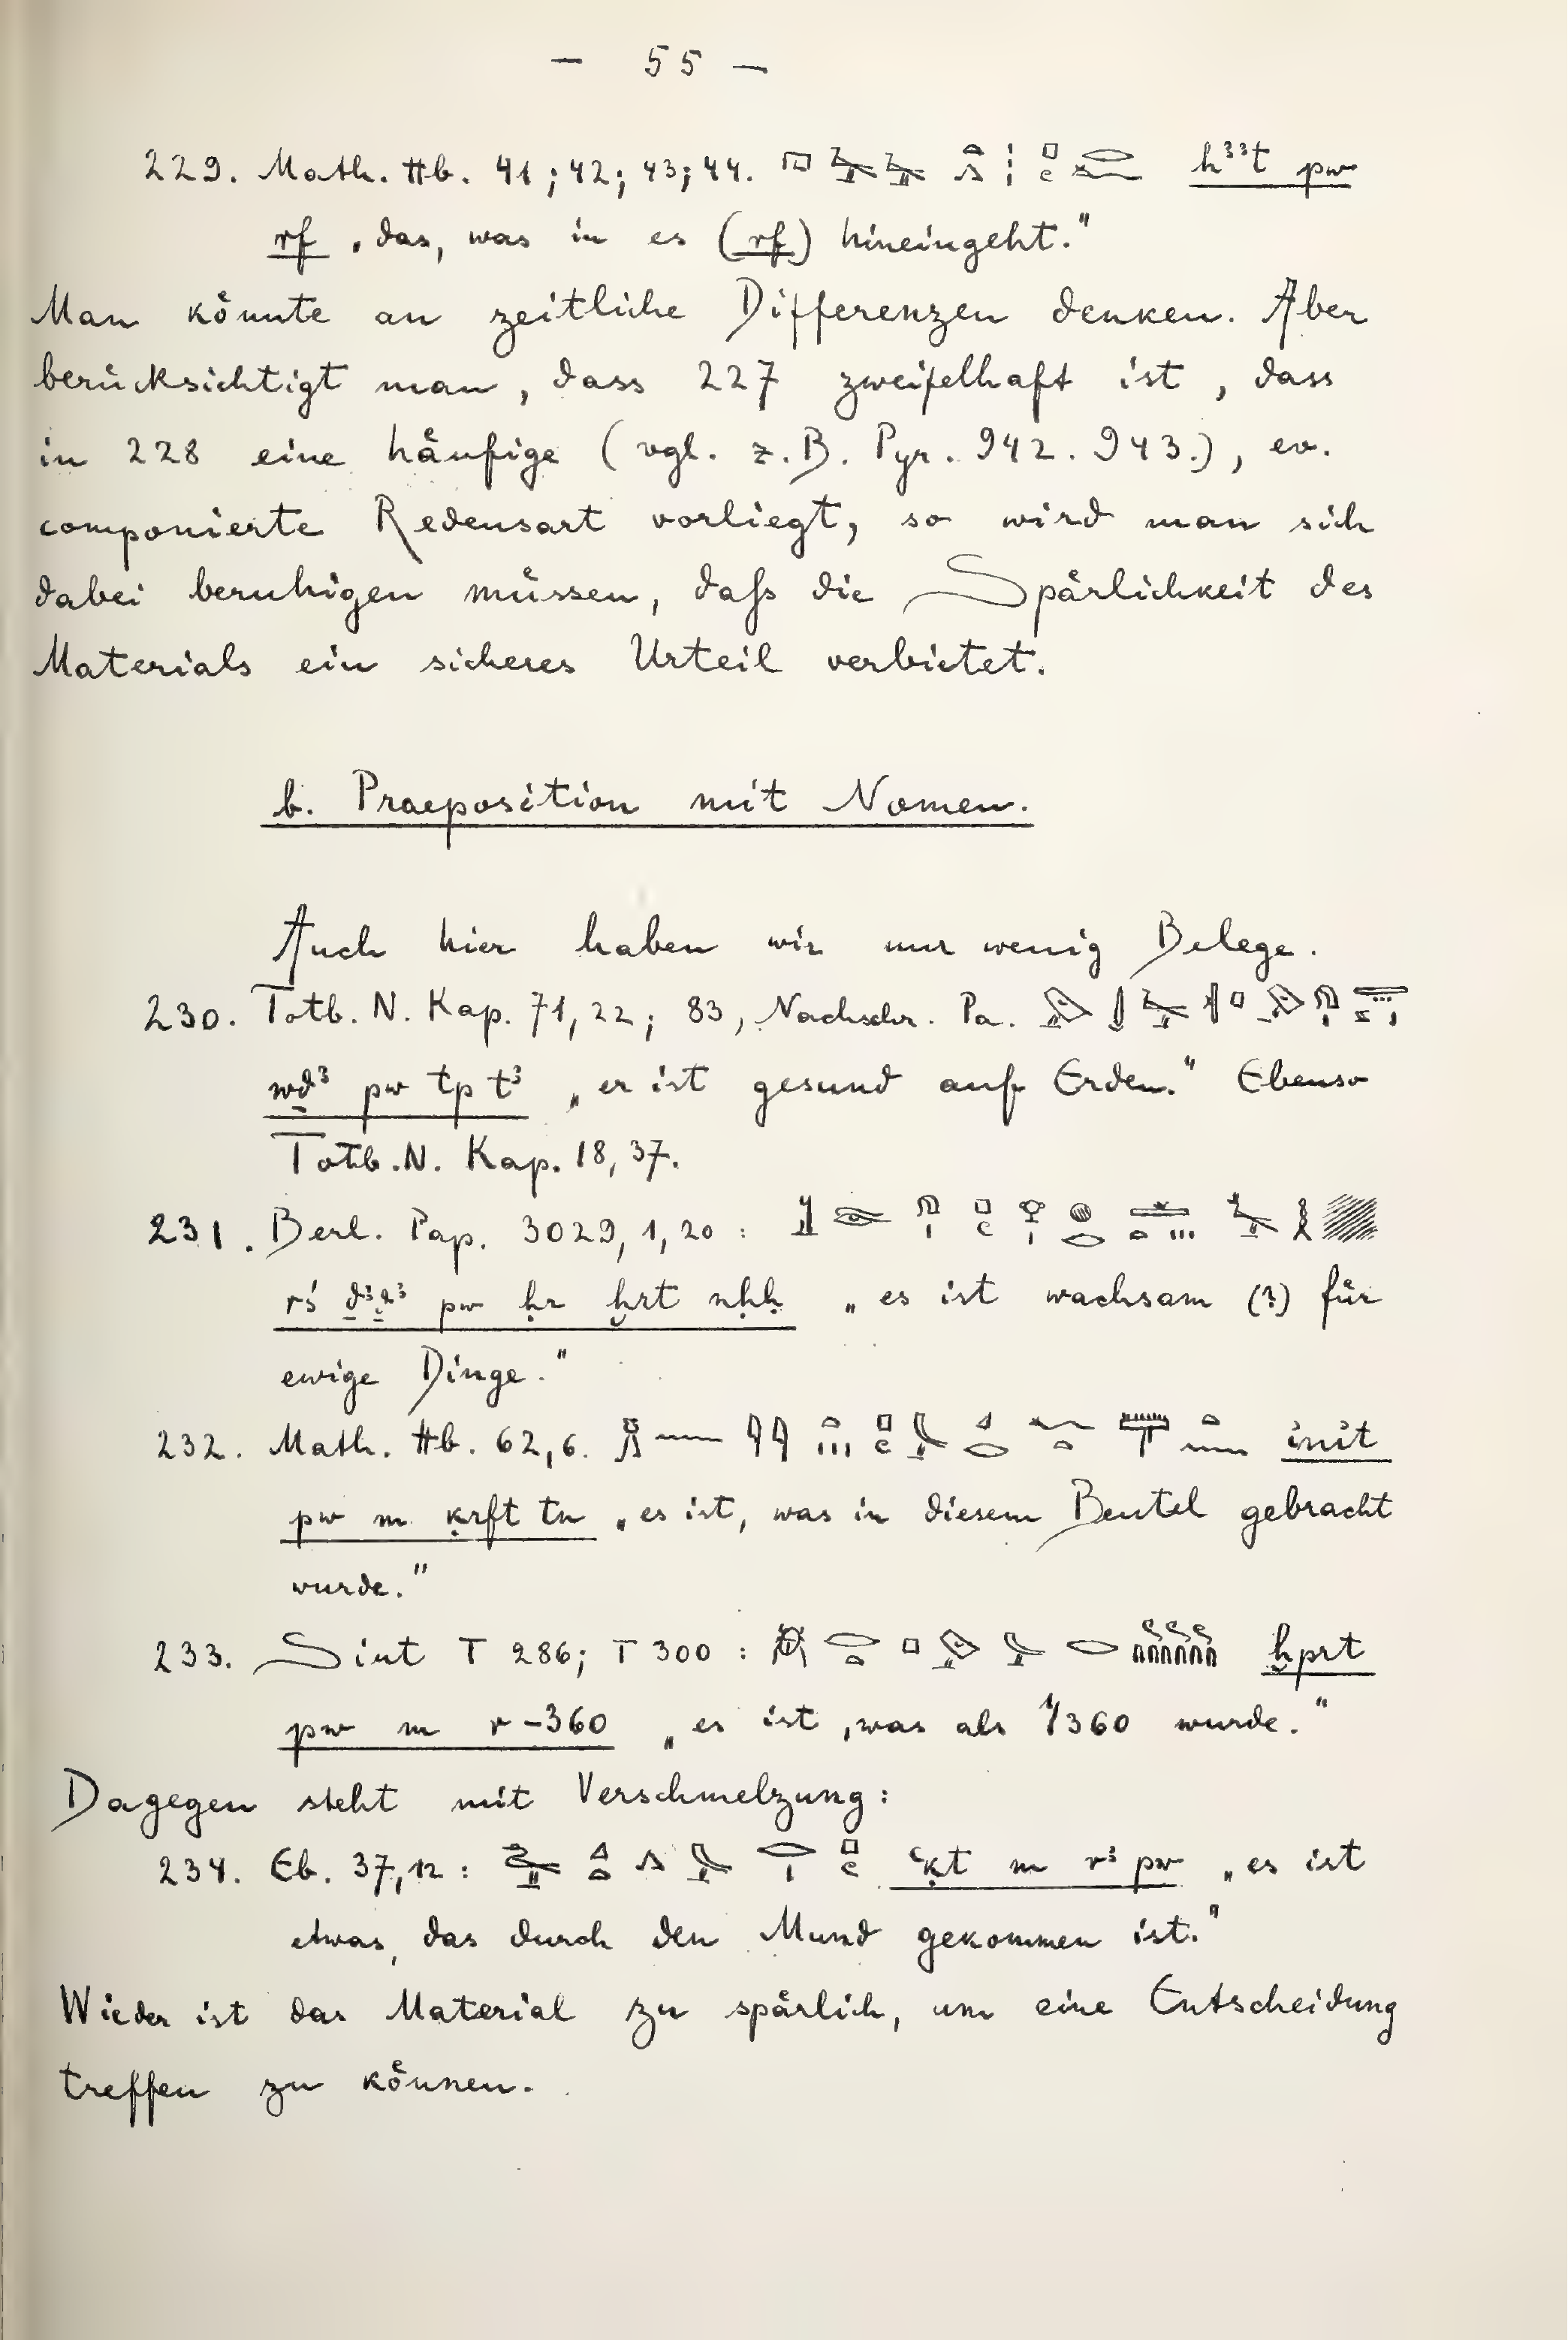 - 55 -
229. Math. Hb. 41; 42; 43; 44. hꜣꜣt pw
rf „das, was in es (rf) hineingeht.“
Man könnte an zeitliche Differenzen denken. Aber
berücksichtigt man, dass 227 zweifelhaft ist, dass
in 228 eine häufige (vgl. z.B. Pyr. 942. 943.), ev.
componierte Redensart vorliegt, so wird man sich
dabei beruhigen müssen, daſs die Spärlichkeit des
Materials ein sicheres Urteil verbietet.
b. Praeposition mit Nomen.
Auch hier haben wir nur wenig Belege.
230. Totb. N. Kap. 71, 22; 83, Nachschr. Pa.
wḏꜣ pw tp tꜣ „er ist gesund auf Erden.“ Ebenso
Totb. N. Kap. 18, 37.
231. Berl. Pap. 3029, 1, 20 :
rś pw ḥr ẖrt nḥḥ „es ist wachsam (?) für
ewige Dinge.“
232. Math. Hb. 62, 6. init
pw m ḳrft tn „es ist, was in diesem Beutel gebracht
wurde.“
233. Siut T 286; T 300 : ḫprt
pw m r-360 „es ist, was als 1/360 wurde.“
Dagegen steht mit Verschmelzung:
234. Eb. 37, 12 : ꜥḳt m rꜣ pw „es ist
etwas, das durch den Mund gekommen ist.“
Wieder ist das Material zu spärlich, um eine Entscheidung
treffen zu können.